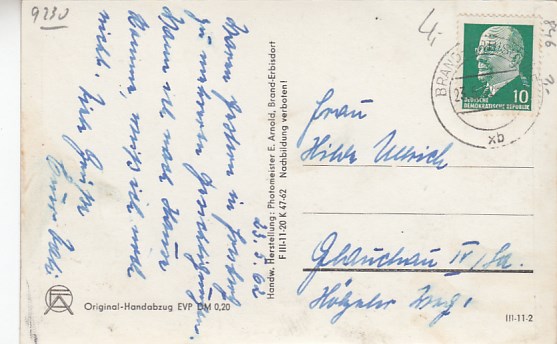 9230
Waren gestern in Freiberg
zu unserer
Wann ich nach Hause
komme, weiß ich noch
nicht. Viele Grüße
Euer
23.5.62
Original-Handabzug EVP DM 0,20
Handw. Herstellung: Photomeister E. Arnold, Brand-Erbisdorf
F III-11-20 K 47-62 Nachbildung verboten!
BRAND
xb
10
DEUTSCHE
DEMOKRATISCHE REPUBLIK
Frau
Hilde Ullrich
Glauchau IV/Sa.
Hölzeler Weg
III-11-2